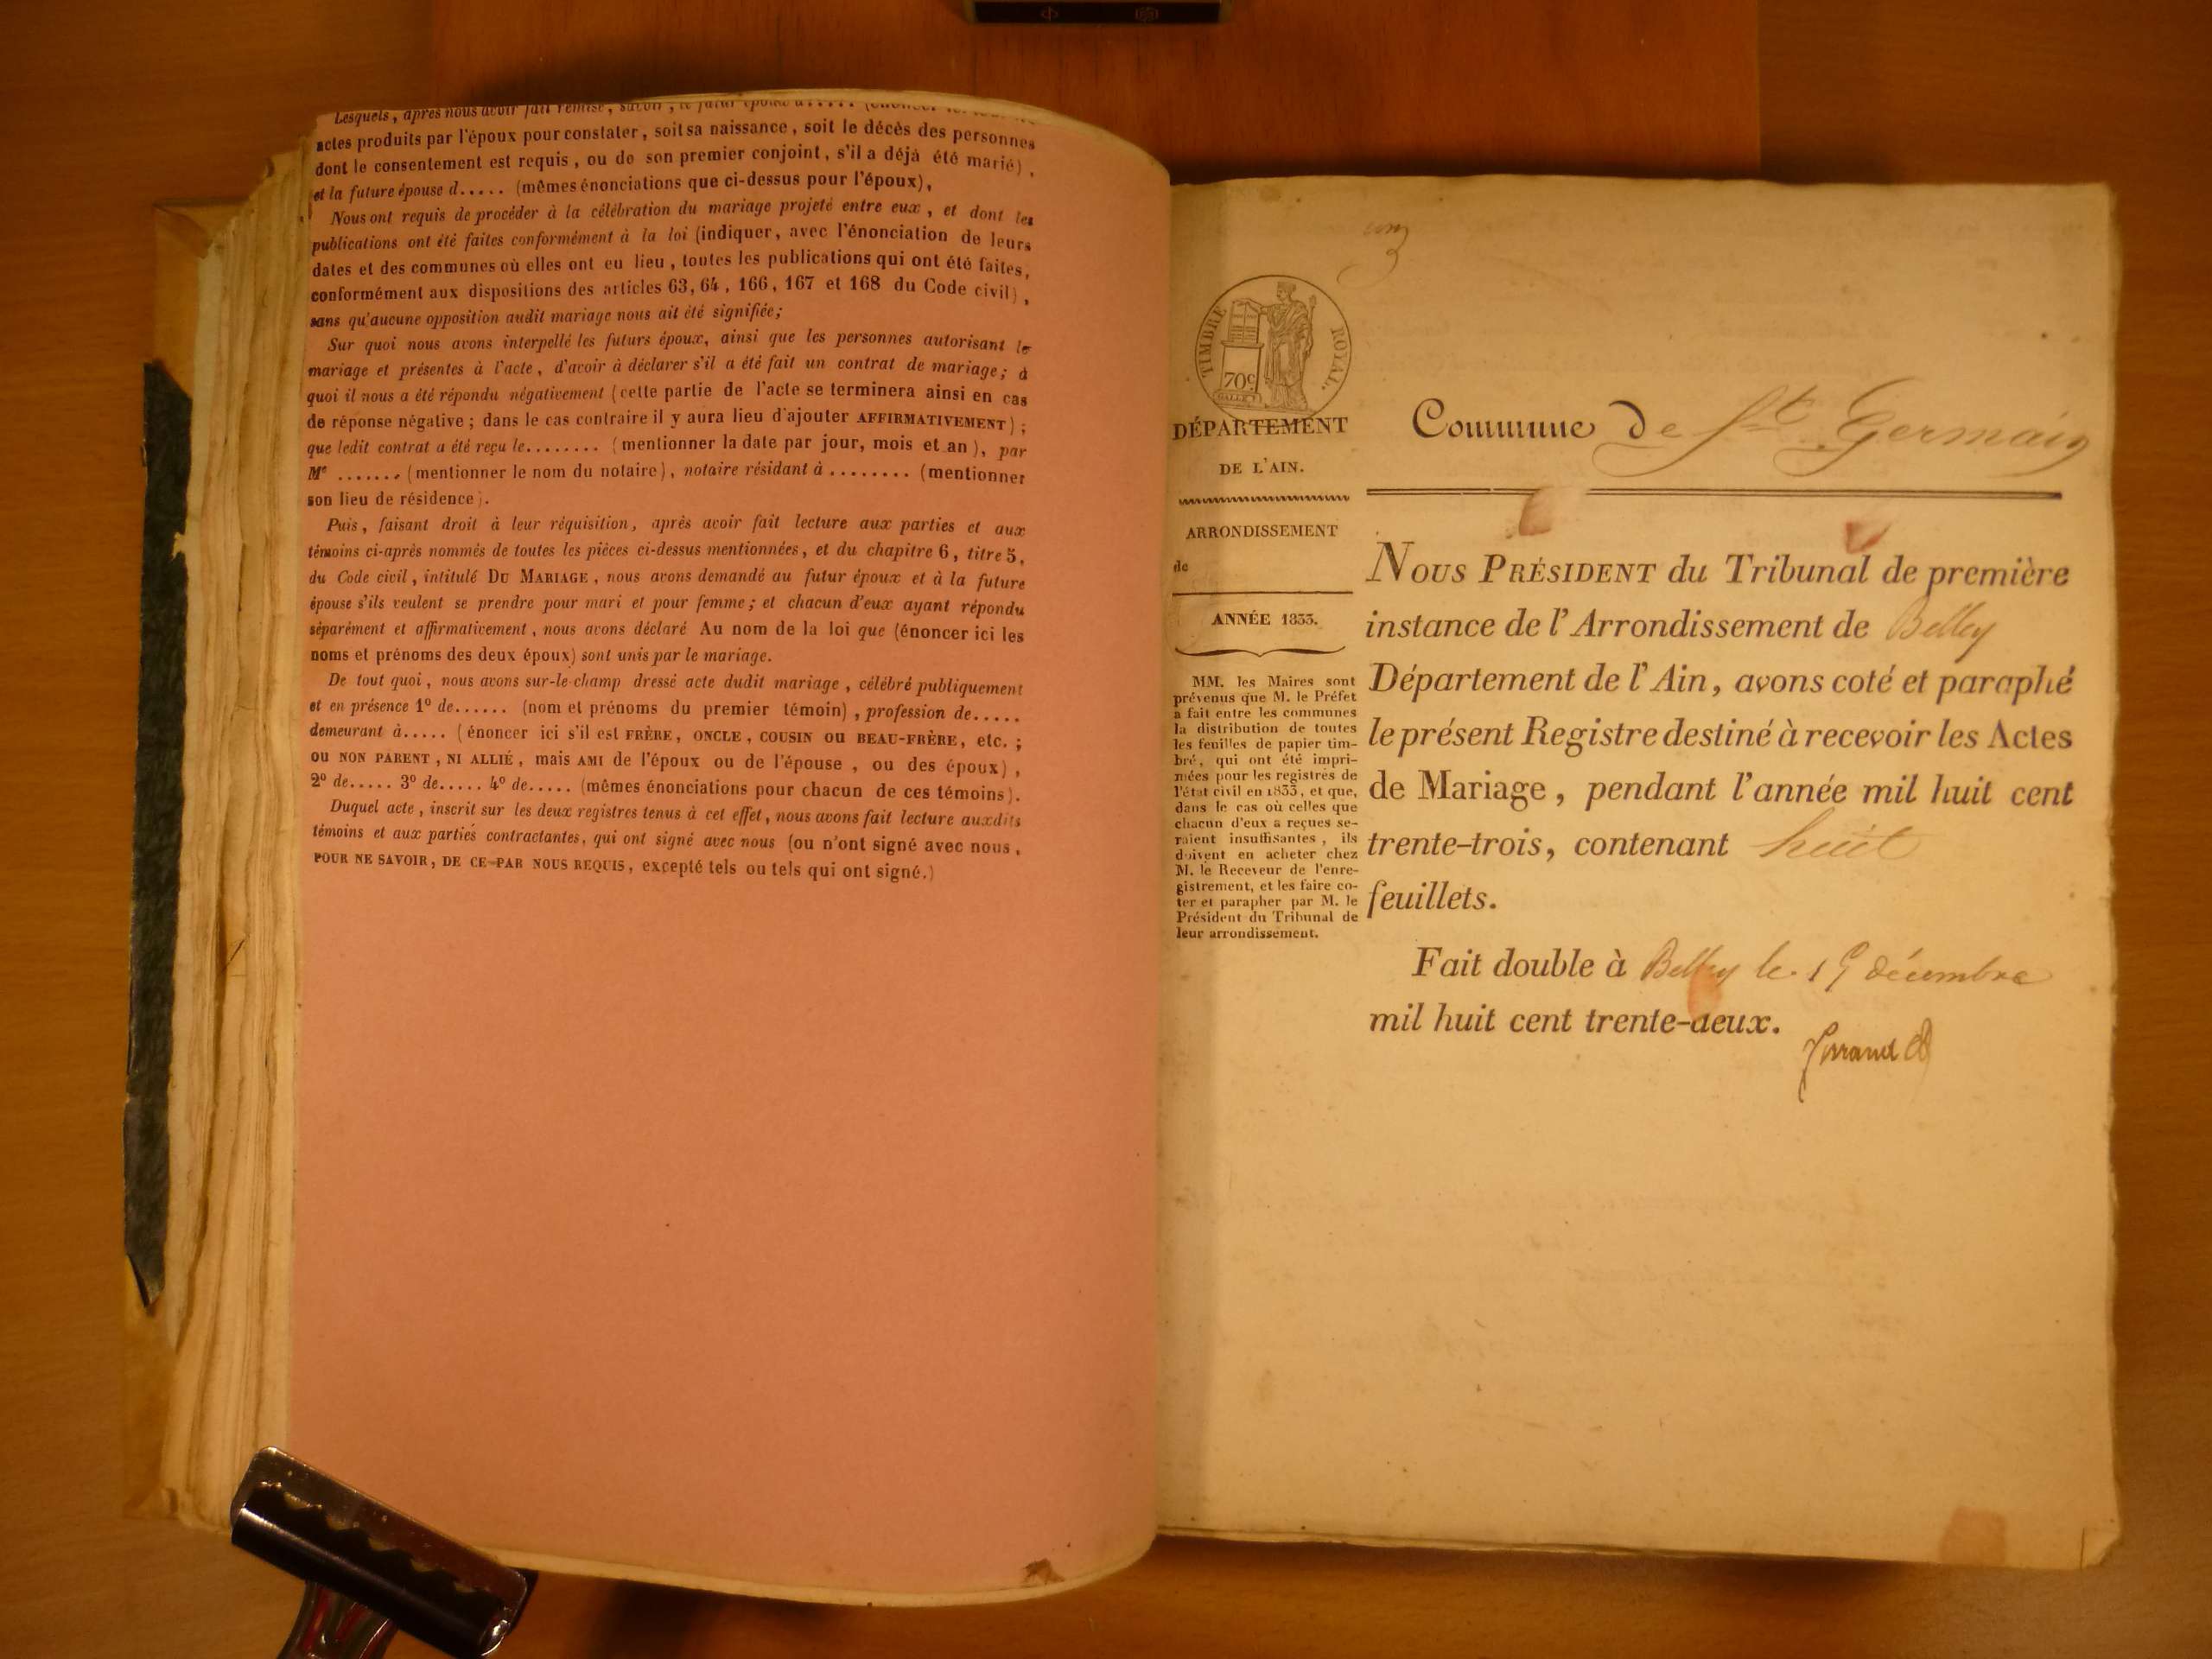 Lesquels, après nous avoir fait remise, savoir, le futur époux d.....
actes produits par l'époux pour constater, soit sa naissance, soit le décès des personnes
dont le consentement est requis, ou de son premier conjoint, s'il a déjà été marié),
et la future épouse d..... (mêmes énonciations que ci-dessus pour l'époux),
Nous ont requis de procéder à la célébration du mariage projeté entre eux, et dont les
publications ont été faites conformément à la loi (indiquer, avec l'énonciation de leurs
dates et des communes où elles ont eu lieu, toutes les publications qui ont été faites,
conformément aux dispositions des articles 63, 64, 166, 167 et 168 du Code civil),
sans qu'aucune opposition audit mariage nous ait été signifiée;
Sur quoi nous avons interpellé les futurs époux, ainsi que les personnes autorisant le
mariage et présentes à l'acte, d'avoir à déclarer s'il a été fait un contrat de mariage; à
quoi il nous a été répondu négativement (cette partie de l'acte se terminera ainsi en cas
de réponse négative; dans le cas contraire il y aura lieu d'ajouter AFFIRMATIVEMENT);
que ledit contrat a été reçu le........ (mentionner la date par jour, mois et an), par
Me ....... (mentionner le nom du notaire), notaire résidant à ........ (mentionner
son lieu de résidence).
Puis, faisant droit à leur réquisition, après avoir fait lecture aux parties et aux
témoins ci-après nommés de toutes les pièces ci-dessus mentionnées, et du chapitre 6, titre 5,
du Code civil, intitulé DU MARIAGE, nous avons demandé au futur époux et à la future
épouse s'ils veulent se prendre pour mari et pour femme; et chacun d'eux ayant répondu
séparément et affirmativement, nous avons déclaré Au nom de la loi que (énoncer ici les
noms et prénoms des deux époux) sont unis par le mariage.
De tout quoi, nous avons sur-le-champ dressé acte dudit mariage, célébré publiquement
et en présence 1º de...... (nom et prénoms du premier témoin), profession de.....
demeurant à..... (énoncer ici s'il est FRÈRE, ONCLE, COUSIN OU BEAU-FRÈRE, etc.;
OU NON PARENT, NI ALLIÉ, mais AMI de l'époux ou de l'épouse, ou des époux),
2º de..... 3º de..... 4º de..... (mêmes énonciations pour chacun de ces témoins).
Duquel acte, inscrit sur les deux registres tenus à cet effet, nous avons fait lecture auxdits
témoins et aux parties contractantes, qui ont signé avec nous (ou n'ont signé avec nous,
POUR NE SAVOIR, DE CE PAR NOUS REQUIS, excepté tels ou tels qui ont signé.)
un
TIMBRE ROYAL.
70c
DÉPARTEMENT
DE L'AIN.
ARRONDISSEMENT
de
ANNÉE 1833.
MM. les Maires sont
prévenus que M. le Préfet
a fait entre les communes
la distribution de toutes
les feuilles de papier tim-
bré, qui ont été impri-
mées pour les registres de
l'état civil en 1833, et que,
dans le cas où celles que
chacun d'eux a reçues se-
raient insuffisantes, ils
doivent en acheter chez
M. le Receveur de l'enre-
gistrement, et les faire co-
ter et parapher par M. le
Président du Tribunal de
leur arrondissement.
Commune De St Germain
NOUS PRÉSIDENT du Tribunal de première
instance de l'Arrondissement de Belley
Département de l'Ain, avons coté et paraphé
le présent Registre destiné à recevoir les Actes
de Mariage, pendant l'année mil huit cent
trente-trois, contenant huit
feuillets.
Fait double à Belley le 19 décembre
mil huit cent trente-deux.